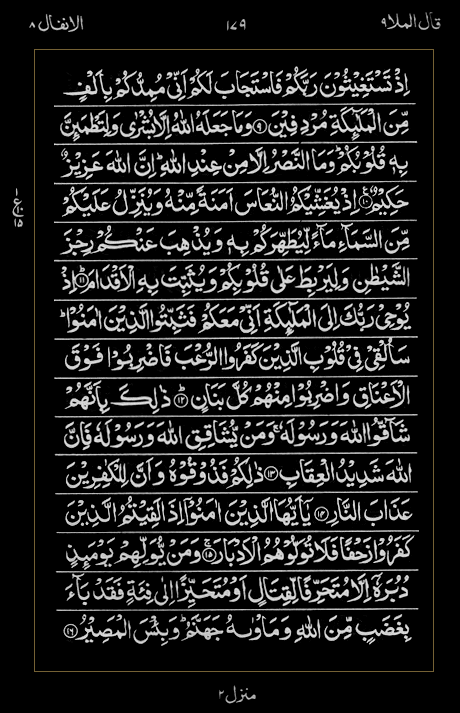 قال الملا ٩
١٧٩
الانفال ٨
اِذْ تَسْتَغِيْثُوْنَ رَبَّكُمْ فَاسْتَجَابَ لَكُمْ اَنِّىْ مُمِدُّكُمْ بِاَلْفٍ
مِّنَ الْمَلٰٓئِكَةِ مُرْدِفِيْنَ ﴿٩﴾ وَمَا جَعَلَهُ اللّٰهُ اِلَّا بُشْرٰى وَلِتَطْمَئِنَّ
بِهٖ قُلُوْبُكُمْ ۚ وَمَا النَّصْرُ اِلَّا مِنْ عِنْدِ اللّٰهِ ؕ اِنَّ اللّٰهَ عَزِيْزٌ
حَكِيْمٌ ﴿١٠﴾ اِذْ يُغَشِّيْكُمُ النُّعَاسَ اَمَنَةً مِّنْهُ وَيُنَزِّلُ عَلَيْكُمْ
مِّنَ السَّمَآءِ مَآءً لِّيُطَهِّرَكُمْ بِهٖ وَيُذْهِبَ عَنْكُمْ رِجْزَ
الشَّيْطٰنِ وَلِيَرْبِطَ عَلٰى قُلُوْبِكُمْ وَيُثَبِّتَ بِهِ الْاَقْدَامَ ؕ ﴿١١﴾ اِذْ
يُوْحِىْ رَبُّكَ اِلَى الْمَلٰٓئِكَةِ اَنِّىْ مَعَكُمْ فَثَبِّتُوا الَّذِيْنَ اٰمَنُوْا ؕ
سَاُلْقِىْ فِىْ قُلُوْبِ الَّذِيْنَ كَفَرُوا الرُّعْبَ فَاضْرِبُوْا فَوْقَ
الْاَعْنَاقِ وَاضْرِبُوْا مِنْهُمْ كُلَّ بَنَانٍ ؕ ﴿١٢﴾ ذٰلِكَ بِاَنَّهُمْ
شَآقُّوا اللّٰهَ وَرَسُوْلَهٗ ۚ وَمَنْ يُّشَاقِقِ اللّٰهَ وَرَسُوْلَهٗ فَاِنَّ
اللّٰهَ شَدِيْدُ الْعِقَابِ ﴿١٣﴾ ذٰلِكُمْ فَذُوْقُوْهُ وَاَنَّ لِلْكٰفِرِيْنَ
عَذَابَ النَّارِ ﴿١٤﴾ يٰۤاَيُّهَا الَّذِيْنَ اٰمَنُوْۤا اِذَا لَقِيْتُمُ الَّذِيْنَ
كَفَرُوْا زَحْفًا فَلَا تُوَلُّوْهُمُ الْاَدْبَارَ ۚ ﴿١٥﴾ وَمَنْ يُّوَلِّهِمْ يَوْمَئِذٍ
دُبُرَهٗۤ اِلَّا مُتَحَرِّفًا لِّقِتَالٍ اَوْ مُتَحَيِّزًا اِلٰى فِئَةٍ فَقَدْ بَآءَ
بِغَضَبٍ مِّنَ اللّٰهِ وَمَاْوٰىهُ جَهَنَّمُ ؕ وَبِئْسَ الْمَصِيْرُ ﴿١٦﴾
ع
١٥
منزل ٢